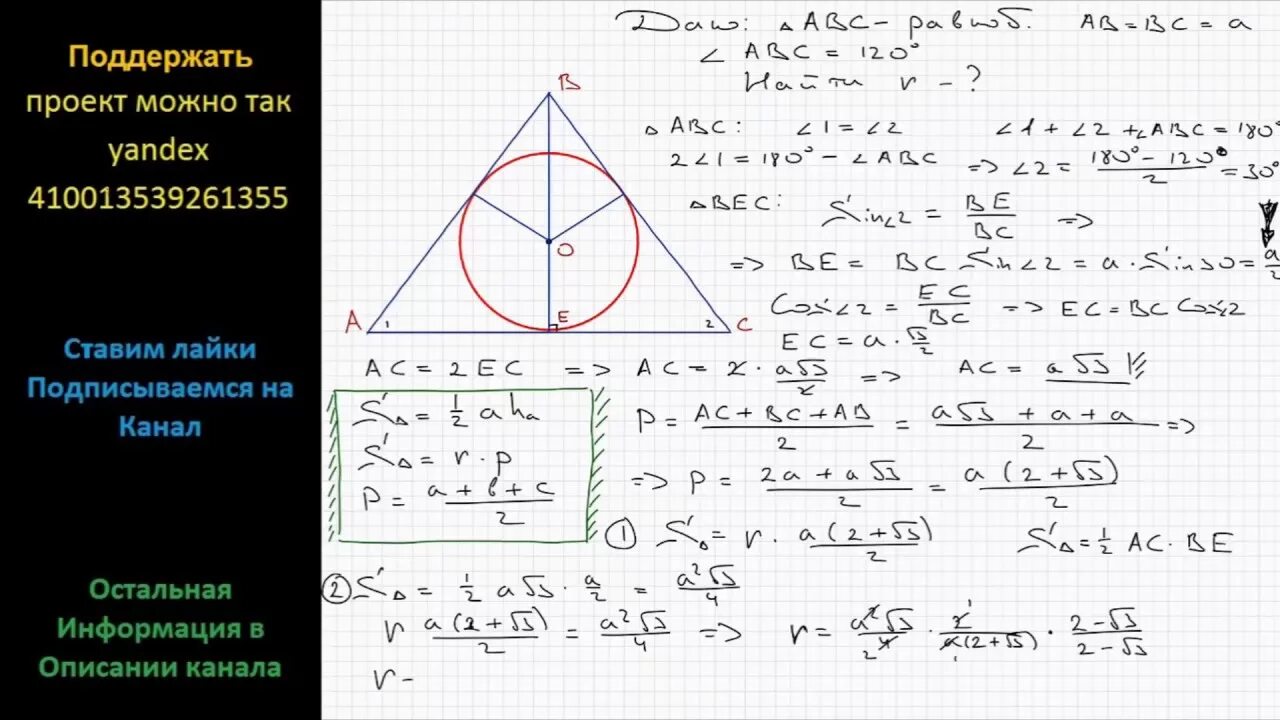 Поддержать
проект можно так
yandex
410013539261355
Ставим лайки
Подписываемся на
Канал
Остальная
Информация в
Описании канала
Дано: △ABC – равноб. AB = BC = a
∠ABC = 120°
Найти r - ?
B
O
A
1
E
2
C
△ABC: ∠1 = ∠2 ∠1 + ∠2 + ∠ABC = 180°
2∠1 = 180° – ∠ABC => ∠2 = (180° – 120°)/2 = 30°
△BEC: Sin∠2 = BE/BC =>
=> BE = BC Sin∠2 = a · Sin30 = a/2
Cos∠2 = EC/BC => EC = BC Cos∠2
EC = a · √3/2
AC = 2EC => AC = 2 · a√3/2 => AC = a√3
S△ = 1/2 a ha
S△ = r · p
P = (a + b + c)/2
P = (AC + BC + AB)/2 = (a√3 + a + a)/2 =>
=> P = (2a + a√3)/2 = a(2 + √3)/2
① S△ = r · a(2 + √3)/2 S△ = 1/2 AC · BE
② S△ = 1/2 a√3 · a/2 = a²√3/4
r a(2 + √3)/2 = a²√3/4 => r = a²√3/4 2 · 2 1/a(2 + √3) 1 · (2 – √3)/(2 – √3)
r –